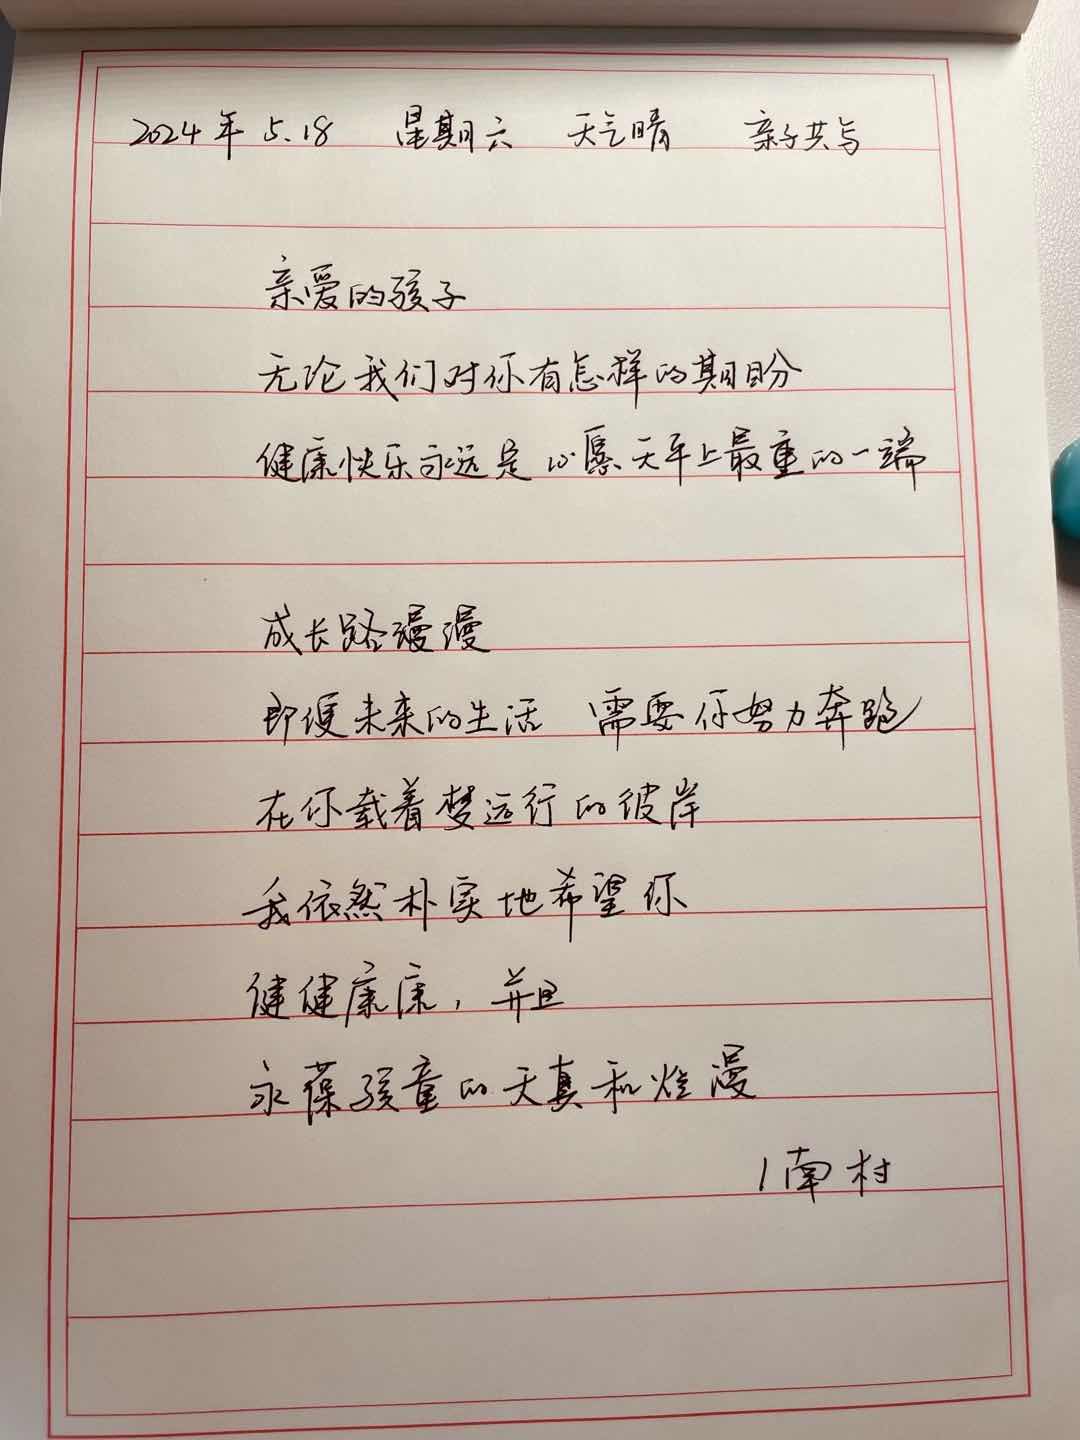 2024年 5.18 星期六 天气晴 亲子共写
亲爱的孩子
无论我们对你有怎样的期盼
健康快乐永远是心愿天平上最重的一端
成长路漫漫
即便未来的生活 需要你努力奔跑
在你载着梦远行的彼岸
我依然朴实地希望你
健健康康，并且
永葆孩童的天真和烂漫
/南村